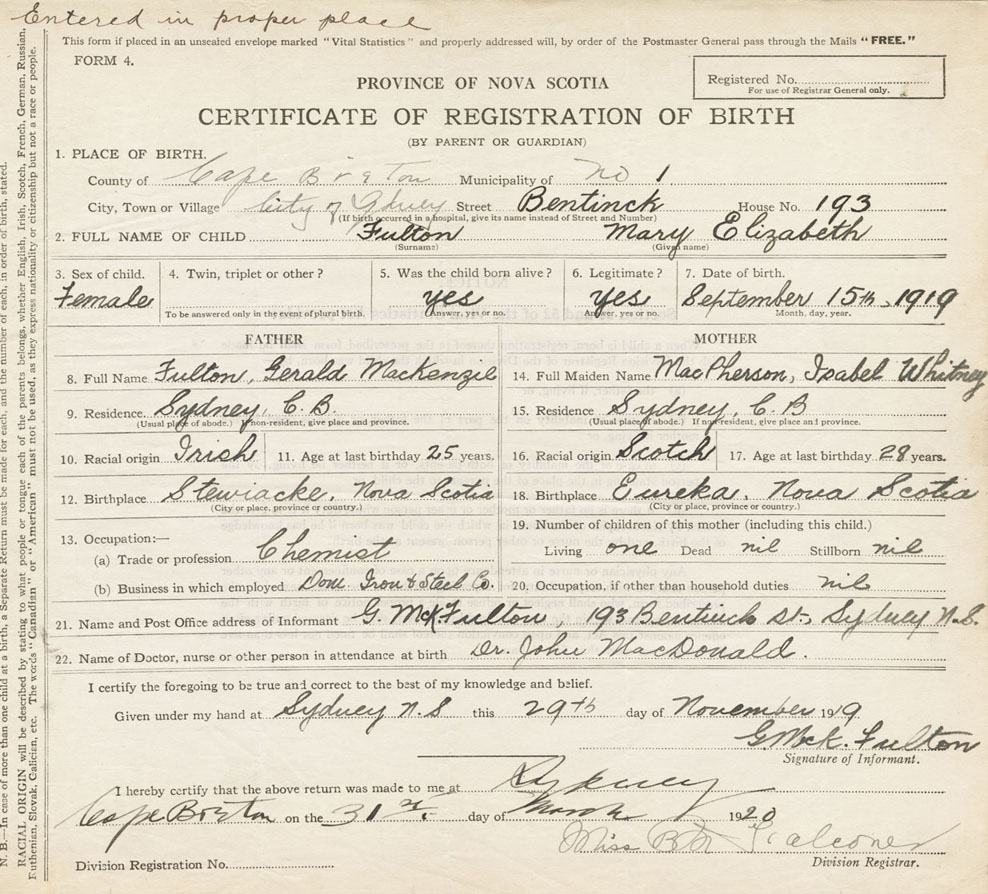 Entered in proper place
This form if placed in an unsealed envelope marked "Vital Statistics" and properly addressed will, by order of the Postmaster General pass through the Mails "FREE."
FORM 4.
Registered No.
For use of Registrar General only.
PROVINCE OF NOVA SCOTIA
CERTIFICATE OF REGISTRATION OF BIRTH
(BY PARENT OR GUARDIAN)
1. PLACE OF BIRTH.
County of Cape Breton Municipality of No 1
City, Town or Village City of Sydney Street Bentinck House No. 193
(If birth occurred in a hospital, give its name instead of Street and Number)
2. FULL NAME OF CHILD Fulton Mary Elizabeth
(Surname) (Given name)
3. Sex of child. 4. Twin, triplet or other? 5. Was the child born alive? 6. Legitimate? 7. Date of birth.
Female yes Yes September 15th, 1919
To be answered only in the event of plural birth. Answer, yes or no. Answer, yes or no. Month, day, year.
FATHER MOTHER
8. Full Name Fulton, Gerald Mackenzie 14. Full Maiden Name MacPherson, Isabel Whitney
9. Residence Sydney, C.B. 15. Residence Sydney, C.B
(Usual place of abode.) If non-resident, give place and province. (Usual place of abode.) If non-resident, give place and province.
10. Racial origin Irish 11. Age at last birthday 25 years. 16. Racial origin Scotch 17. Age at last birthday 28 years.
12. Birthplace Stewiacke, Nova Scotia 18. Birthplace Eureka, Nova Scotia
(City or place, province or country.) (City or place, province or country.)
13. Occupation:— 19. Number of children of this mother (including this child.)
(a) Trade or profession Chemist Living one Dead nil Stillborn nil
(b) Business in which employed Dom. Iron & Steel Co. 20. Occupation, if other than household duties nil
21. Name and Post Office address of Informant G. McK Fulton, 193 Bentinck St., Sydney N.S.
22. Name of Doctor, nurse or other person in attendance at birth Dr. John MacDonald.
I certify the foregoing to be true and correct to the best of my knowledge and belief.
Given under my hand at Sydney N.S this 29th day of November 1919
G McK. Fulton
Signature of Informant.
I hereby certify that the above return was made to me at Sydney
Cape Breton on the 31st. day of March 1920
Miss B M Falconer
Division Registration No. Division Registrar.
N. B.—In case of more than one child at a birth, a Separate Return must be made for each, and the number of each, in order of birth, stated.
RACIAL ORIGIN will be described by stating to what people or tongue each of the parents belongs, whether English, Irish, Scotch, French, German, Russian,
Ruthenian, Slovak, Galician, etc. The words "Canadian" or "American" must not be used, as they express nationality or citizenship but not a race or people.